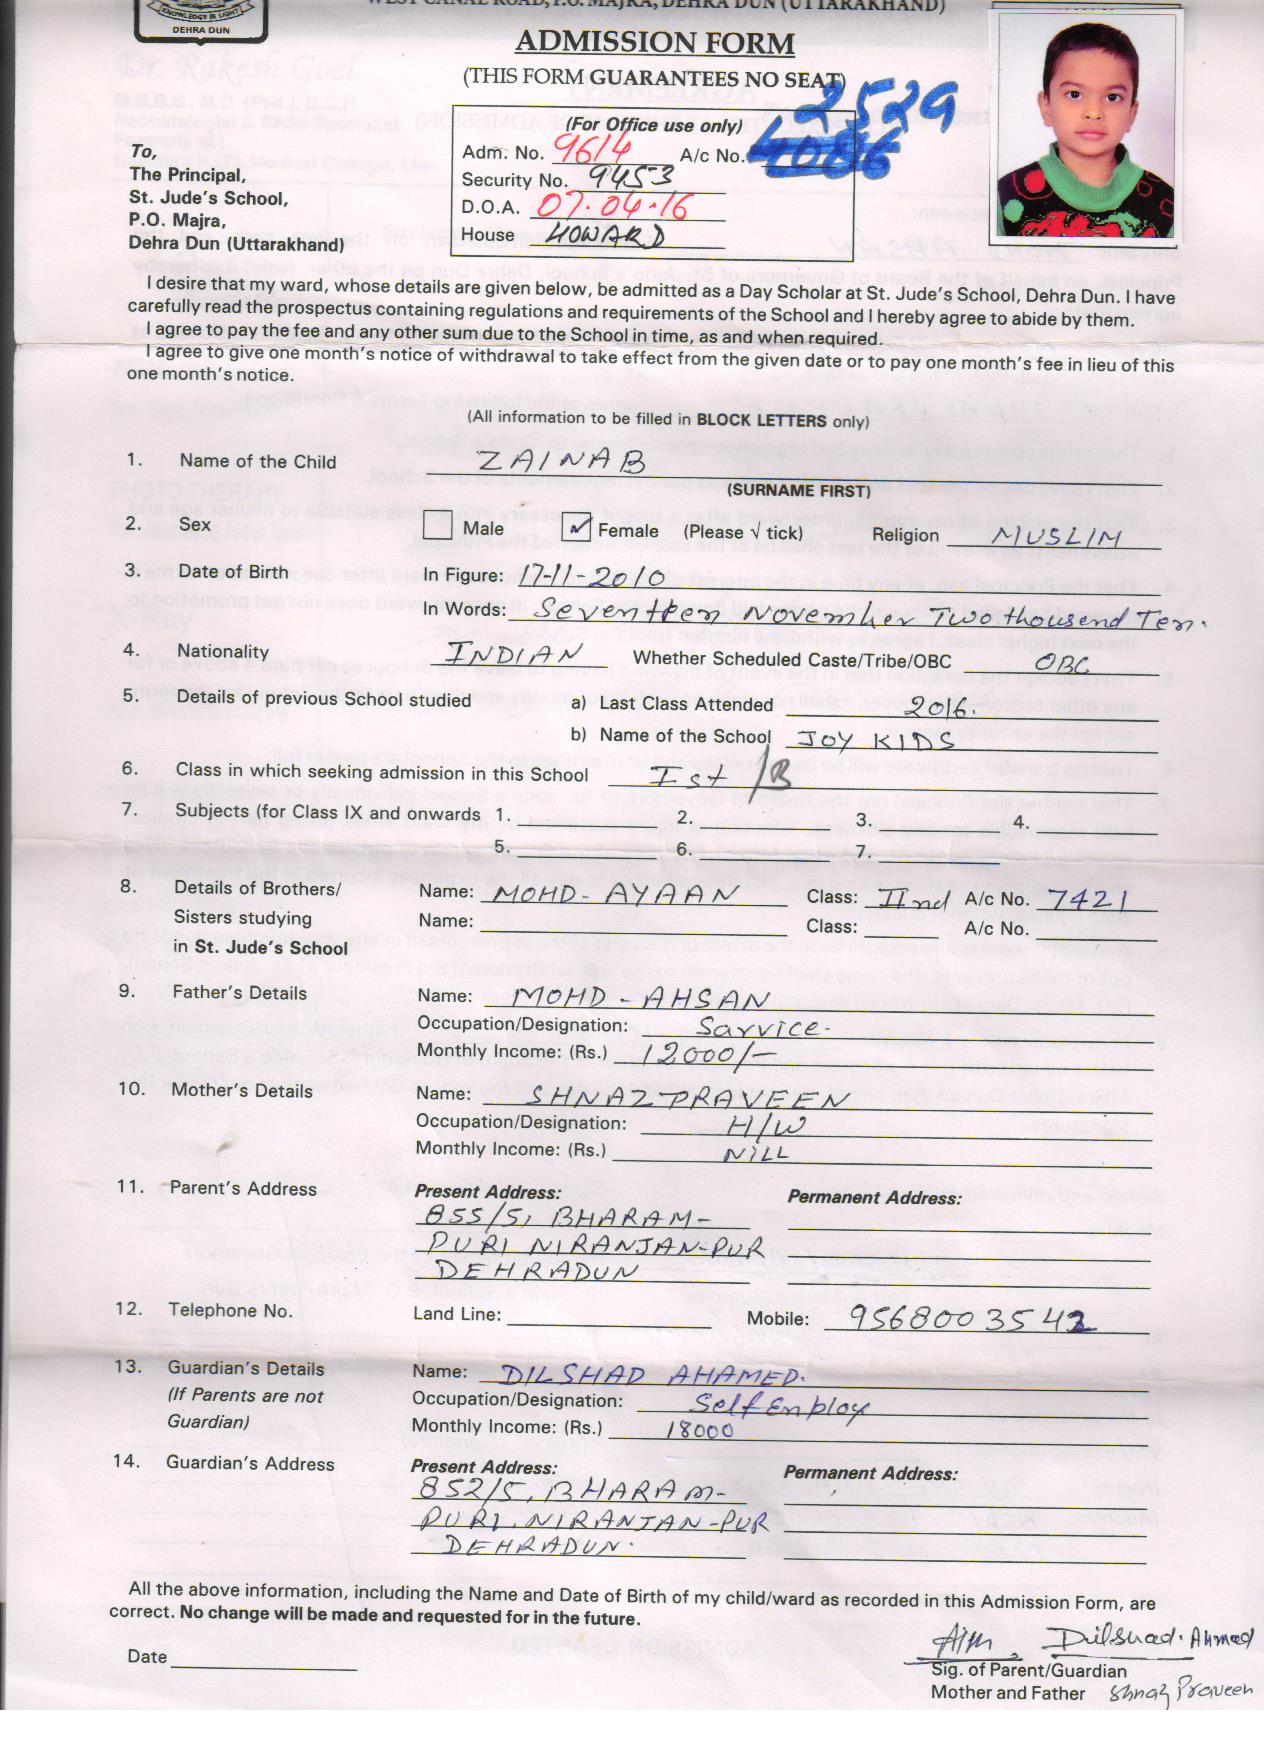 KNOWLEDGE & LIGHT
DEHRA DUN
WEST CANAL ROAD, P.O. MAJRA, DEHRA DUN (UTTARAKHAND)
ADMISSION FORM
(THIS FORM GUARANTEES NO SEAT)
2529
(For Office use only)
Adm. No. 9614 A/c No.
Security No. 9453
D.O.A. 07.04.16
House HOWARD
To,
The Principal,
St. Jude's School,
P.O. Majra,
Dehra Dun (Uttarakhand)
I desire that my ward, whose details are given below, be admitted as a Day Scholar at St. Jude's School, Dehra Dun. I have
carefully read the prospectus containing regulations and requirements of the School and I hereby agree to abide by them.
I agree to pay the fee and any other sum due to the School in time, as and when required.
I agree to give one month's notice of withdrawal to take effect from the given date or to pay one month's fee in lieu of this
one month's notice.
(All information to be filled in BLOCK LETTERS only)
1. Name of the Child ZAINAB
(SURNAME FIRST)
2. Sex Male ✓ Female (Please √ tick) Religion MUSLIM
3. Date of Birth In Figure: 17-11-2010
In Words: Seventeen November Two thousend Ten.
4. Nationality INDIAN Whether Scheduled Caste/Tribe/OBC OBC
5. Details of previous School studied a) Last Class Attended 2016.
b) Name of the School JOY KIDS
6. Class in which seeking admission in this School Ist /B
7. Subjects (for Class IX and onwards 1. 2. 3. 4.
5. 6. 7.
8. Details of Brothers/ Name: MOHD-AYAAN Class: IInd A/c No. 7421
Sisters studying Name: Class: A/c No.
in St. Jude's School
9. Father's Details Name: MOHD-AHSAN
Occupation/Designation: Sarvice-
Monthly Income: (Rs.) 12000/-
10. Mother's Details Name: SHNAZ PRAVEEN
Occupation/Designation: H/W
Monthly Income: (Rs.) NILL
11. Parent's Address Present Address: Permanent Address:
855/5, BHARAM-
PURI NIRANJAN-PUR
DEHRADUN
12. Telephone No. Land Line: Mobile: 9568003542
13. Guardian's Details Name: DILSHAD AHAMED.
(If Parents are not Occupation/Designation: Self Employ
Guardian) Monthly Income: (Rs.) 18000
14. Guardian's Address Present Address: Permanent Address:
852/5, BHARAM-
PURI. NIRANJAN-PUR
DEHRADUN.
All the above information, including the Name and Date of Birth of my child/ward as recorded in this Admission Form, are
correct. No change will be made and requested for in the future.
Dilshad. Ahmad
Date
Sig. of Parent/Guardian
Mother and Father Shnaz Praveen